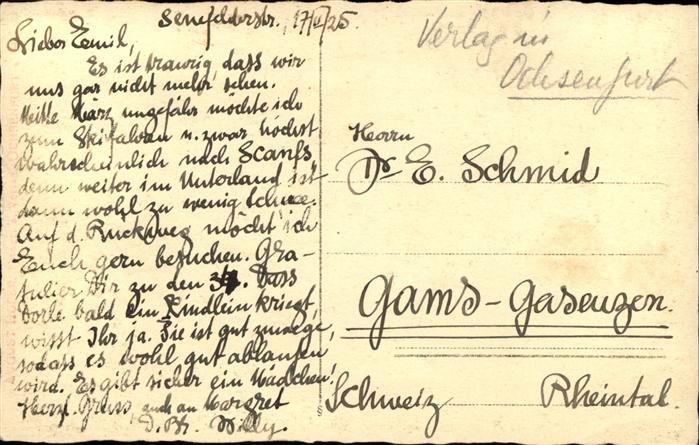 Senefelderstr., 17/II/25.
Lieber Emil,
Es ist traurig, dass wir
uns gar nicht mehr sehen.
Mitte März ungefähr möchte ich
zum Skifahren u. zwar höchst
wahrscheinlich nach Scanfs,
denn weiter im Unterland ist
dann wohl zu wenig Schnee.
Auf d. Rückweg möcht ich
Euch gern besuchen. Gra-
tulier Dir zu den. Dass
Dorle bald ein Kindlein kriegt,
wisst Ihr ja. Sie ist gut zuwege,
sodass es wohl gut ablaufen
wird. Es gibt sicher ein Mädchen!
Herzl. Gruss, auch an Margret
D. Br. Willy.
Verlag in
Ochsenfurt
Herrn
Dr. E. Schmid
Gams-Gasenzen.
Schweiz Rheintal.